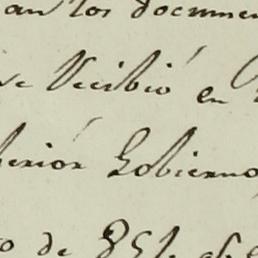 an los documen
ve Recibió en
perior Gobierno
o de